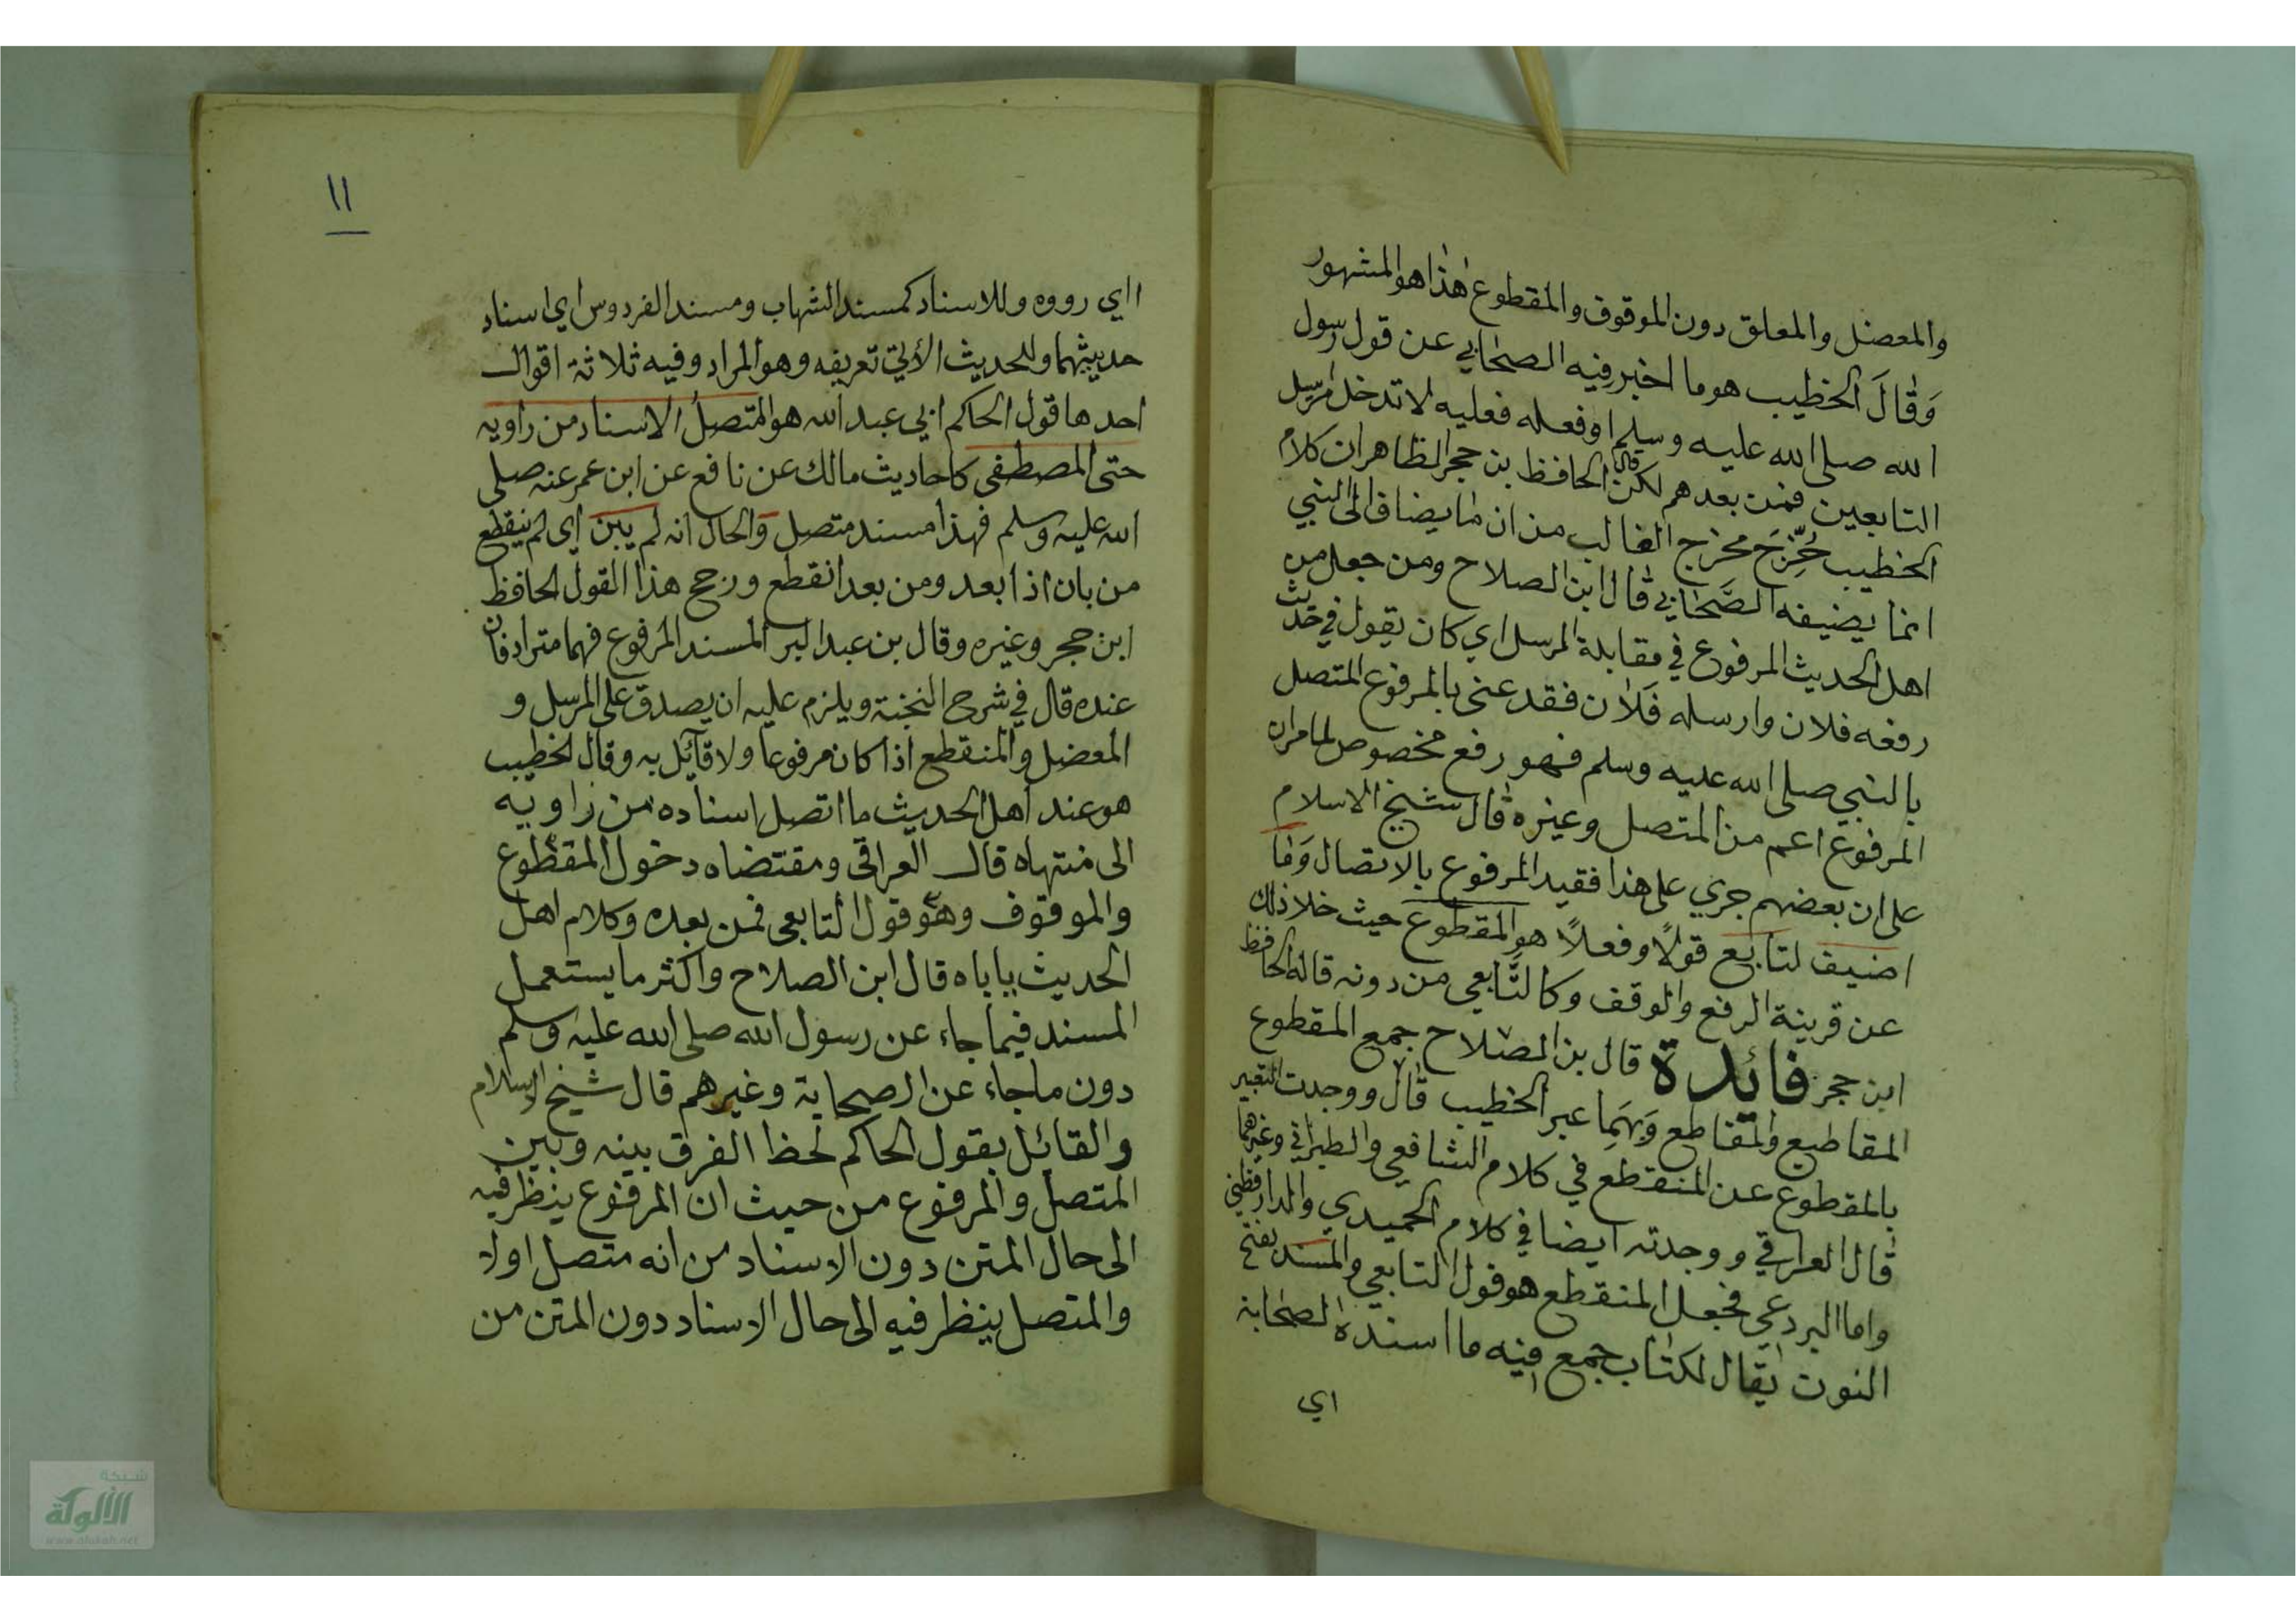 والمعضل والمعلق دون الموقوف والمقطوع هذا هو المشهور
وقال الخطيب هو ما اخبر فيه الصحابي عن قول رسول
الله صلى الله عليه وسلم او فعله فعليه لا تدخل مرسل
التابعين فمن بعدهم لكن قال الحافظ بن حجر الظاهر ان كلام
الخطيب خرج مخرج الغالب من ان ما يضاف الى النبي
انما يضيفه الصحابي قال ابن الصلاح ومن جعل من
اهل الحديث المرفوع في مقابلة المرسل اي كان يقول في حديث
رفعه فلان وارسله فلان فقد عنى بالمرفوع المتصل
بالنبي صلى الله عليه وسلم فهو رفع مخصوص لما مر ان
المرفوع اعم من المتصل وغيره قال شيخ الاسلام
على ان بعضهم جري على هذا فقيد المرفوع بالاتصال وما
اضيف لتابع قولا وفعلا هو المقطوع حيث خلا ذلك
عن قرينة الرفع والوقف وكالتابعي من دونه قاله الحافظ
ابن حجر فائدة قال بن الصلاح جمع المقطوع
المقاطيع والمقاطع وبهما عبر الخطيب قال ووجدت التعبير
بالمقطوع عن المنقطع في كلام الشافعي والطبراني وغيرهما
قال العراقي ووجدته ايضا في كلام الحميدي والدارقطني
واما البردعي فجعل المنقطع هو قول التابعي والمسند بفتح
النون يقال لكتاب جمع فيه ما اسنده الصحابة
اي
١١
ااي رووه وللاسناد كمسند الشهاب ومسند الفردوس اي اسناد
حديثهما وللحديث الآتي تعريفه وهو المراد وفيه ثلاثة اقوال
احدها قول الحاكم ابي عبد الله هو المتصل الاسناد من راويه
حتى المصطفى كاحاديث مالك عن نافع عن ابن عمر عنه صلى
الله عليه وسلم فهذا مسند متصل والحال انه لم يبن اي لم ينقطع
من بان اذا بعد ومن بعد انقطع ورجح هذا القول الحافظ
ابن حجر وغيره وقال بن عبد البر المسند المرفوع فهما مترادفان
عنده قال في شرح النخبة ويلزم عليه ان يصدق على المرسل و
المعضل والمنقطع اذا كان مرفوعا ولا قائل به وقال الخطيب
هو عند اهل الحديث ما اتصل اسناده من راويه
الى منتهاه قال العراقي ومقتضاه دخول المقطوع
والموقوف وهو قول التابعي فمن بعده وكلام اهل
الحديث ياباه قال ابن الصلاح واكثر ما يستعمل
المسند فيما جاء عن رسول الله صلى الله عليه وسلم
دون ما جاء عن الصحابة وغيرهم قال شيخ الاسلام
والقائل بقول الحاكم لحظ الفرق بينه وبين
المتصل والمرفوع من حيث ان المرفوع ينظر فيه
الى حال المتن دون الاسناد من انه متصل اولا
والمتصل ينظر فيه الى حال الاسناد دون المتن من
شبكة
الألوكة
www.alukah.net